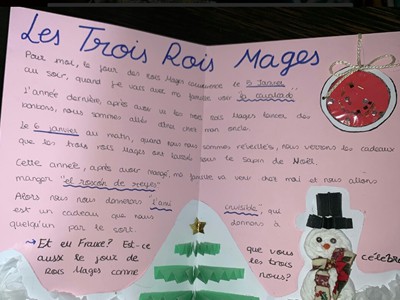 Les Trois Rois Mages
Pour moi, le jour des Rois Mages commence le 5 Janvier
au soir, quand je vais avec ma famille voir "la cavalcade".
L'année dernière, après avoir vu les trois rois Mages lancer des
bonbons, nous sommes allés dîner chez mon oncle.
Le 6 janvier au matin, quand nous nous sommes réveillés, nous verrons les cadeaux
que les trois rois Mages ont laissés sous le Sapin de Noël.
Cette année, après avoir mangé, ma famille va venir chez moi et nous allons
manger "el roscón de reyes"
Alors nous nous donnerons "l'ami invisible", qui
est un cadeau que nous donnons à
quelqu'un par le sort.
→ Et en France? Est-ce que vous célébrez
aussi le jour de les trois
Rois Mages comme nous?